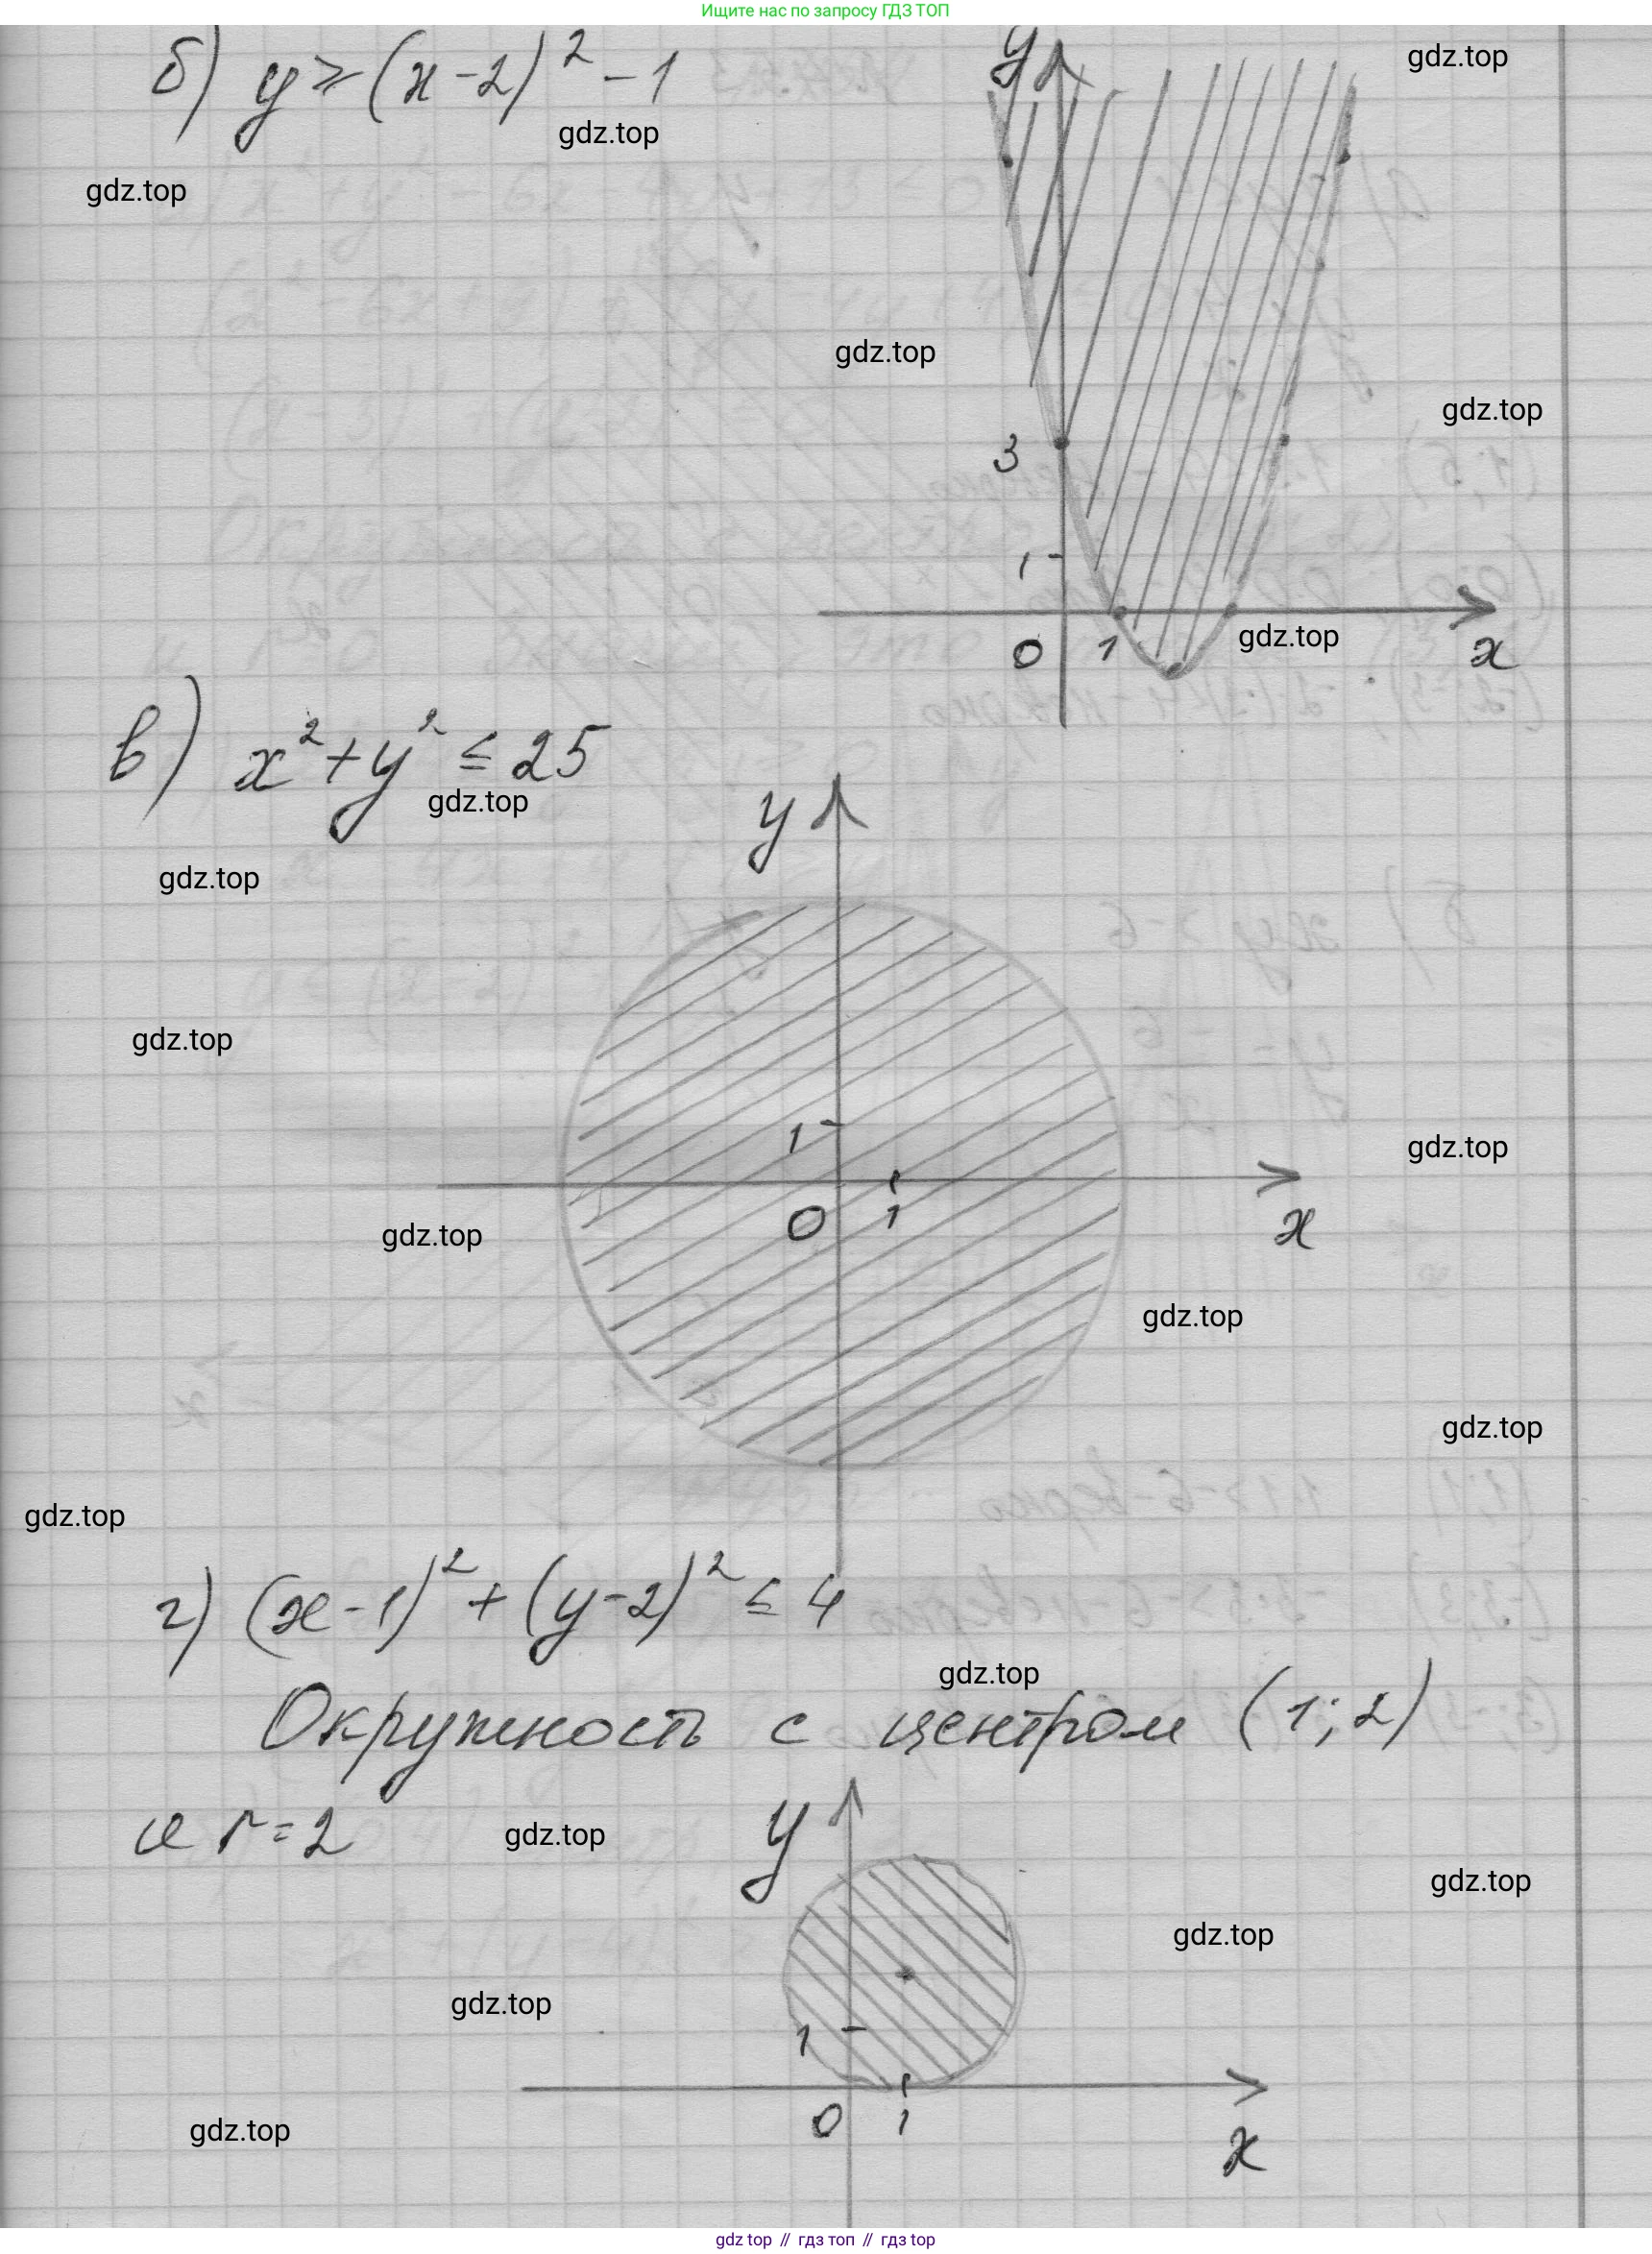 Ищите нас по запросу ГДЗ ТОП
б) y ≥ (x-2)² - 1
y
gdz.top
gdz.top
gdz.top
gdz.top
gdz.top
3
1
0
1
gdz.top
x
в) x² + y² ≤ 25
gdz.top
y
gdz.top
gdz.top
1
gdz.top
0
1
x
gdz.top
gdz.top
gdz.top
gdz.top
г) (x-1)² + (y-2)² ≤ 4
gdz.top
Окружность с центром (1; 2)
и r = 2
gdz.top
y
gdz.top
gdz.top
gdz.top
1
0
1
x
gdz.top
gdz top // гдз топ // гдз top